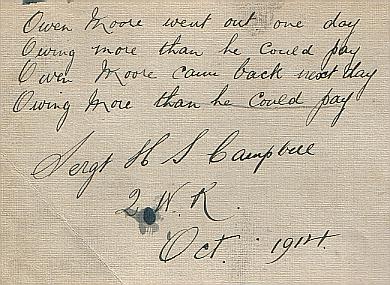 Owen Moore went out one day
Owing more than he could pay
Owen Moore came back next day
Owing More than he could pay
Sergt H S Campbell
2 W. R.
Oct. 1914.